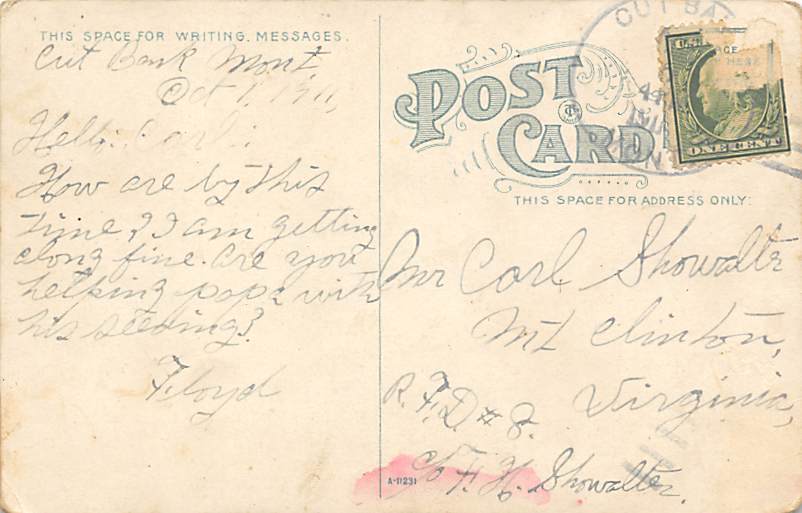 THIS SPACE FOR WRITING MESSAGES.
Cut Bank Mont.
Oct 1, 1911,
Hello Carl:
How are by this
time? I am getting
along fine. are you
helping papa with
his seeding?
Floyd
POST
CARD
CUT BA
MONT
ONE CENT
THIS SPACE FOR ADDRESS ONLY:
Mr Carl Showalter
Mt Clinton,
Virginia,
R.F.D # 8.
c/o F. H. Showalter.
A-11231